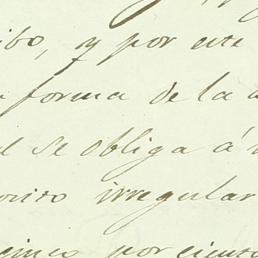 ibo, y por este
forma de la
se obliga á
irregular
cinco por ciento